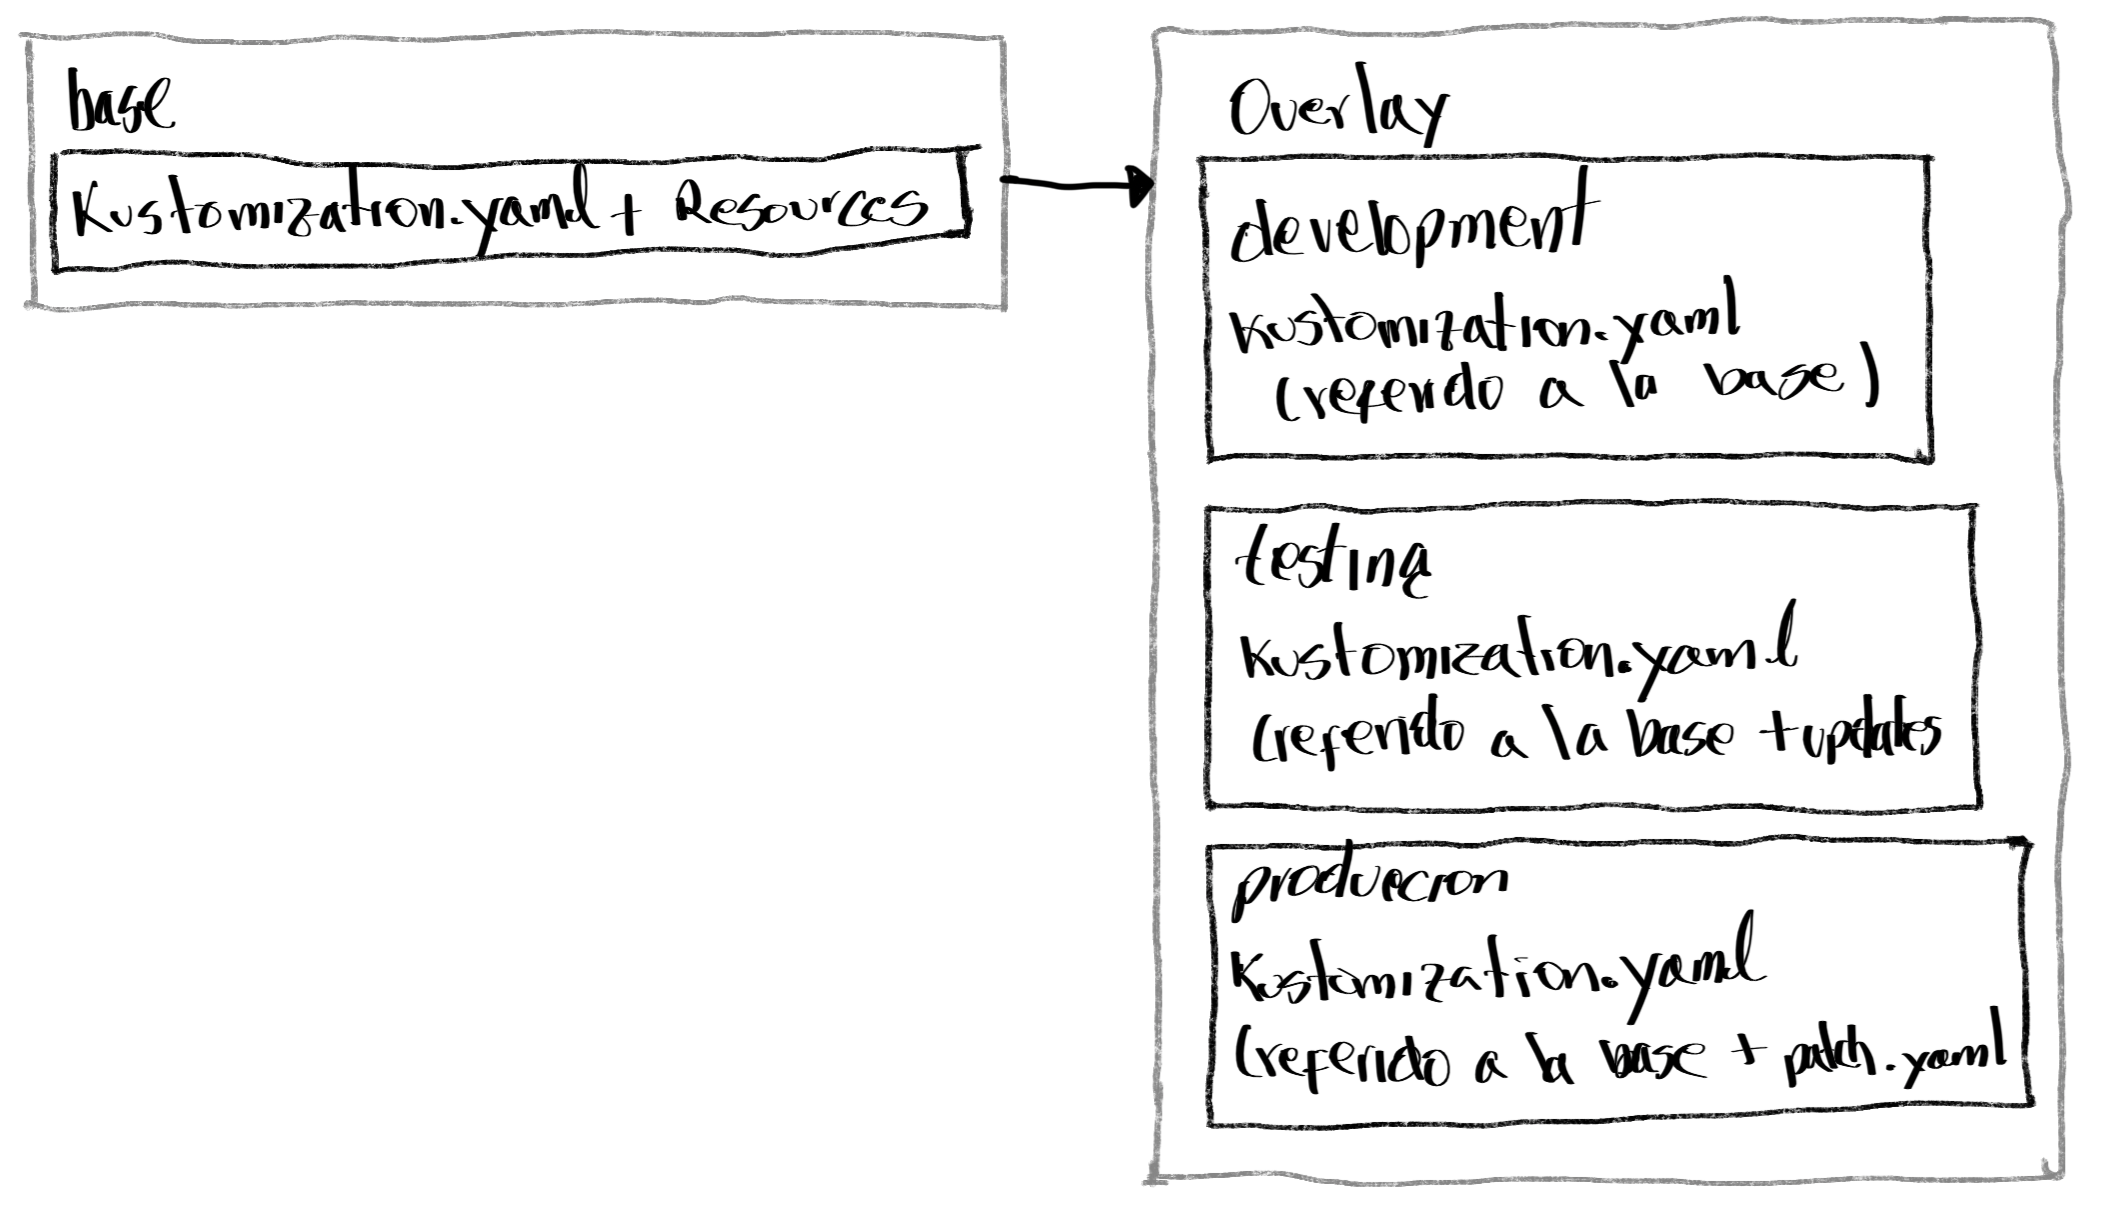 base
Kustomization.yaml + Resources
Overlay
development
Kustomization.yaml
(referido a la base)
testing
Kustomization.yaml
(referido a la base + updates
produccion
Kustomization.yaml
(referido a la base + patch.yaml